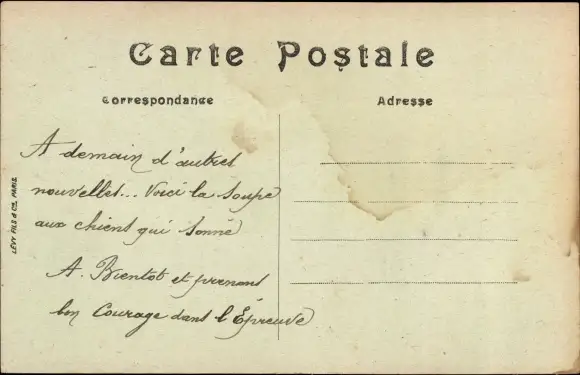 Carte Postale
Correspondance
Adresse
A demain d'autres
nouvelles... Voici la soupe
aux chiens qui sonne
A. Bientot et prenons
bon Courage dans l'Épreuve
LÉVY FILS & Cie, PARIS